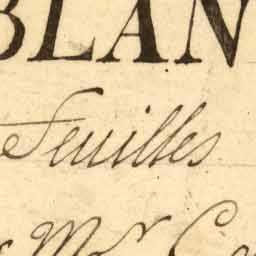 BLAN
Feuilles
Mr Ca